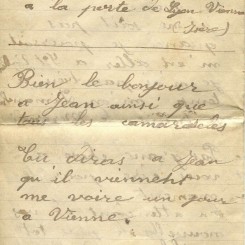 a la porte de Lyon Vienne
(Isère)
Bien le bonjour
a Jean ainsi que
tous les camarades
Tu diras a Jean
qu'il viennent
me voire un jour
a Vienne.